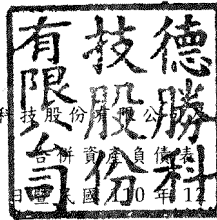 德勝科
技股份
有限公司
科技股份有限公
合併資產負債表
日暨民國110年12